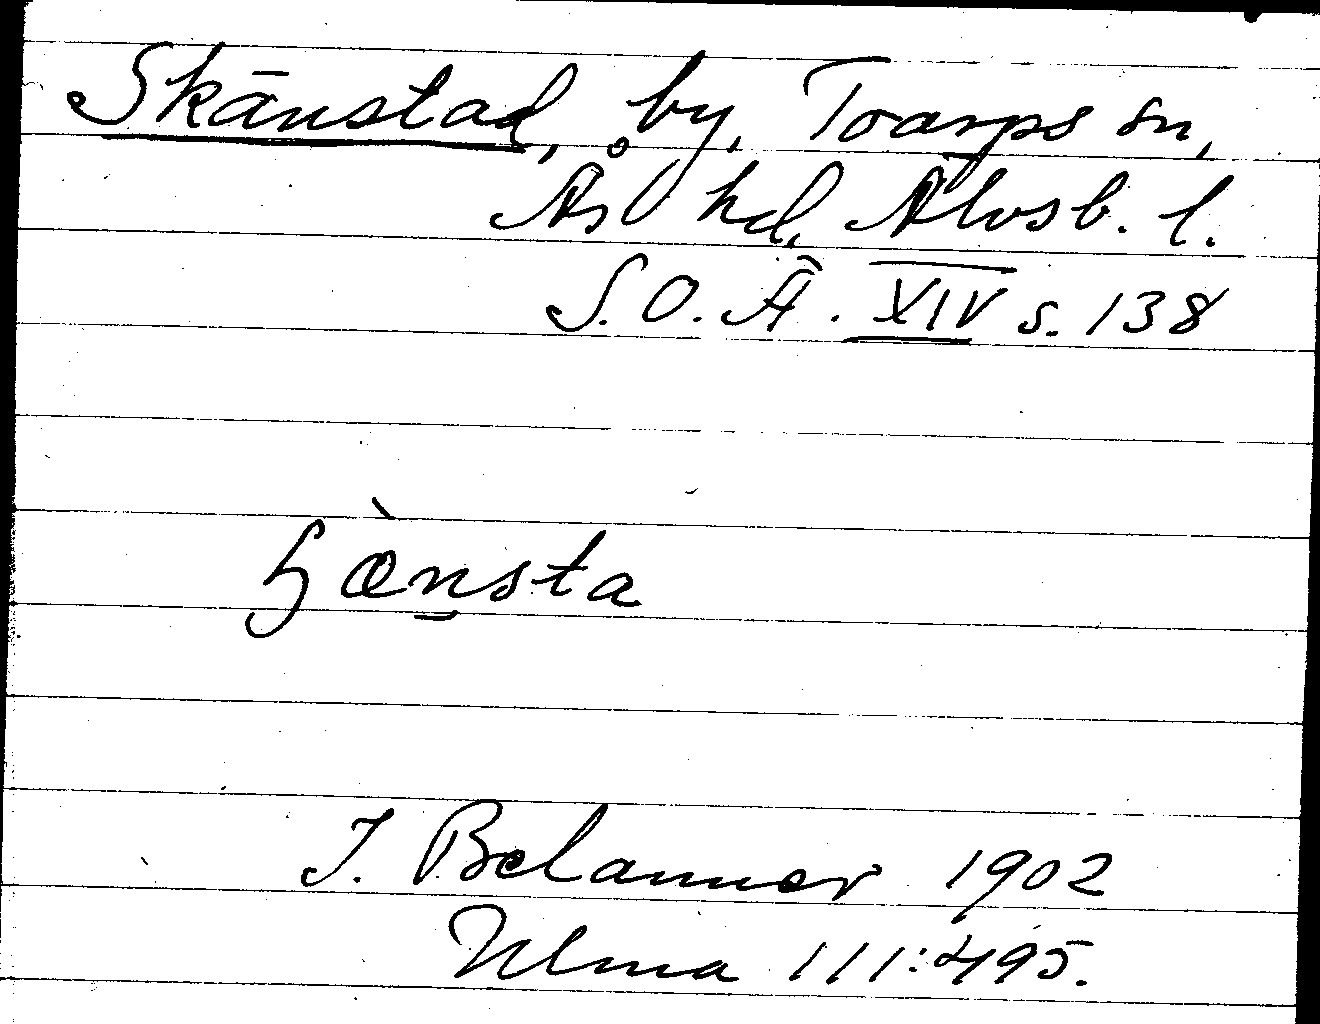 Skänstad, by, Toarps sn,
Ås hd, Älvsb. l.
S.O.Ä. XIV s. 138
ɧæ̀n̠sta
J. Belanner 1902
Ulma 111:495.